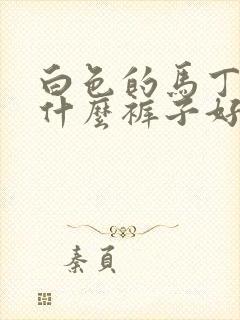 白色的馬丁
什麼褲子好
秦頁